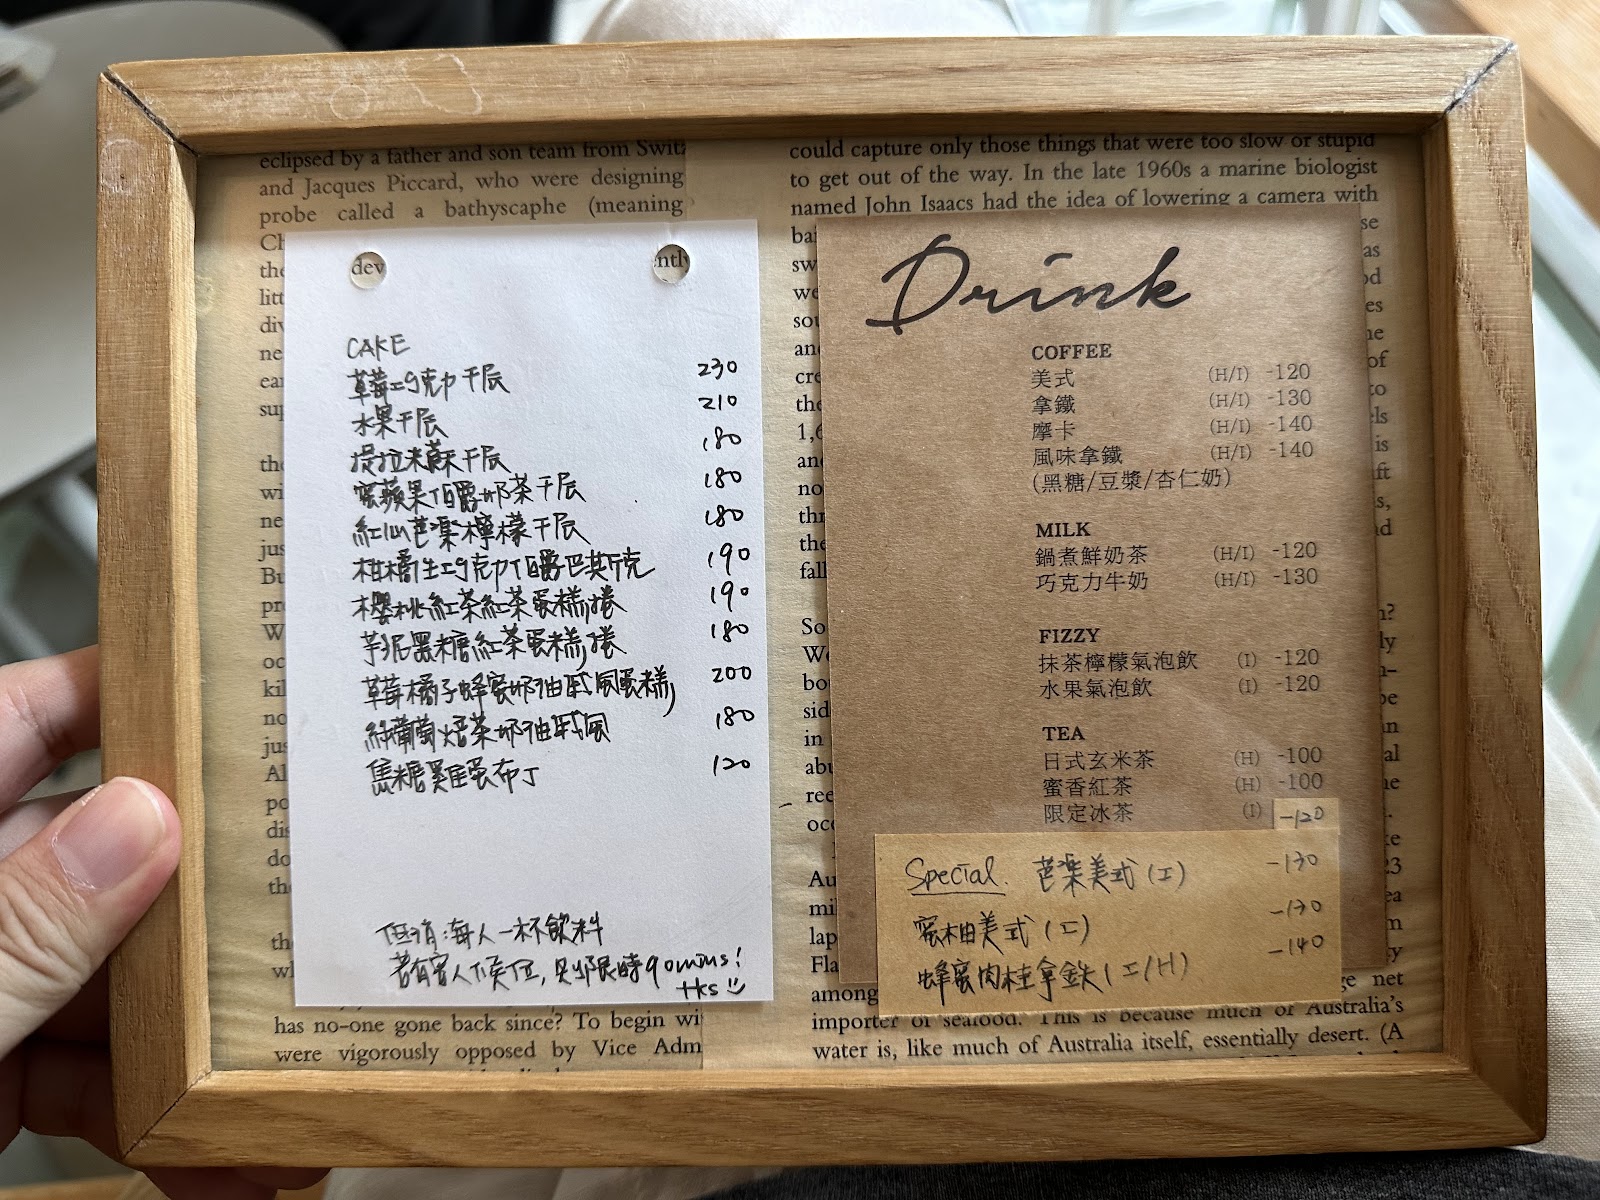 eclipsed by a father and son team from Swit
and Jacques Piccard, who were designing
probe called a bathyscaphe (meaning
dev
ntly
CAKE
草莓巧克巾千层 230
水果千层 210
提拉米蘇千层 180
蜜蘋果伯爵奶茶千层 180
紅心芭樂檸檬千层 180
柑橘生巧克巾伯爵巴斯克 190
櫻桃紅茶紅茶蛋糕捲 190
芋泥黑糖紅茶蛋糕捲 180
草莓橘子蜂蜜奶油戚風蛋糕 200
葡萄焙茶奶油戚風 180
焦糖雞蛋布丁 120
低消:每人一杯飲料
若有客人候位,則限時90mins!
tks
has no-one gone back since? To begin wi
were vigorously opposed by Vice Adm
could capture only those things that were too slow or stupid
to get out of the way. In the late 1960s a marine biologist
named John Isaacs had the idea of lowering a camera with
Drink
COFFEE
美式 (H/I) -120
拿鐵 (H/I) -130
摩卡 (H/I) -140
風味拿鐵 (H/I) -140
(黑糖/豆漿/杏仁奶)
MILK
鍋煮鮮奶茶 (H/I) -120
巧克力牛奶 (H/I) -130
FIZZY
抹茶檸檬氣泡飲 (I) -120
水果氣泡飲 (I) -120
TEA
日式玄米茶 (H) -100
蜜香紅茶 (H) -100
限定冰茶 (I) -120
Special. 芭樂美式(I) -130
蜜柚美式(I) -130
蜂蜜肉桂拿鉄(I/H) -140
among ge net
importer of seafood. This is because much of Australia's
water is, like much of Australia itself, essentially desert. (A